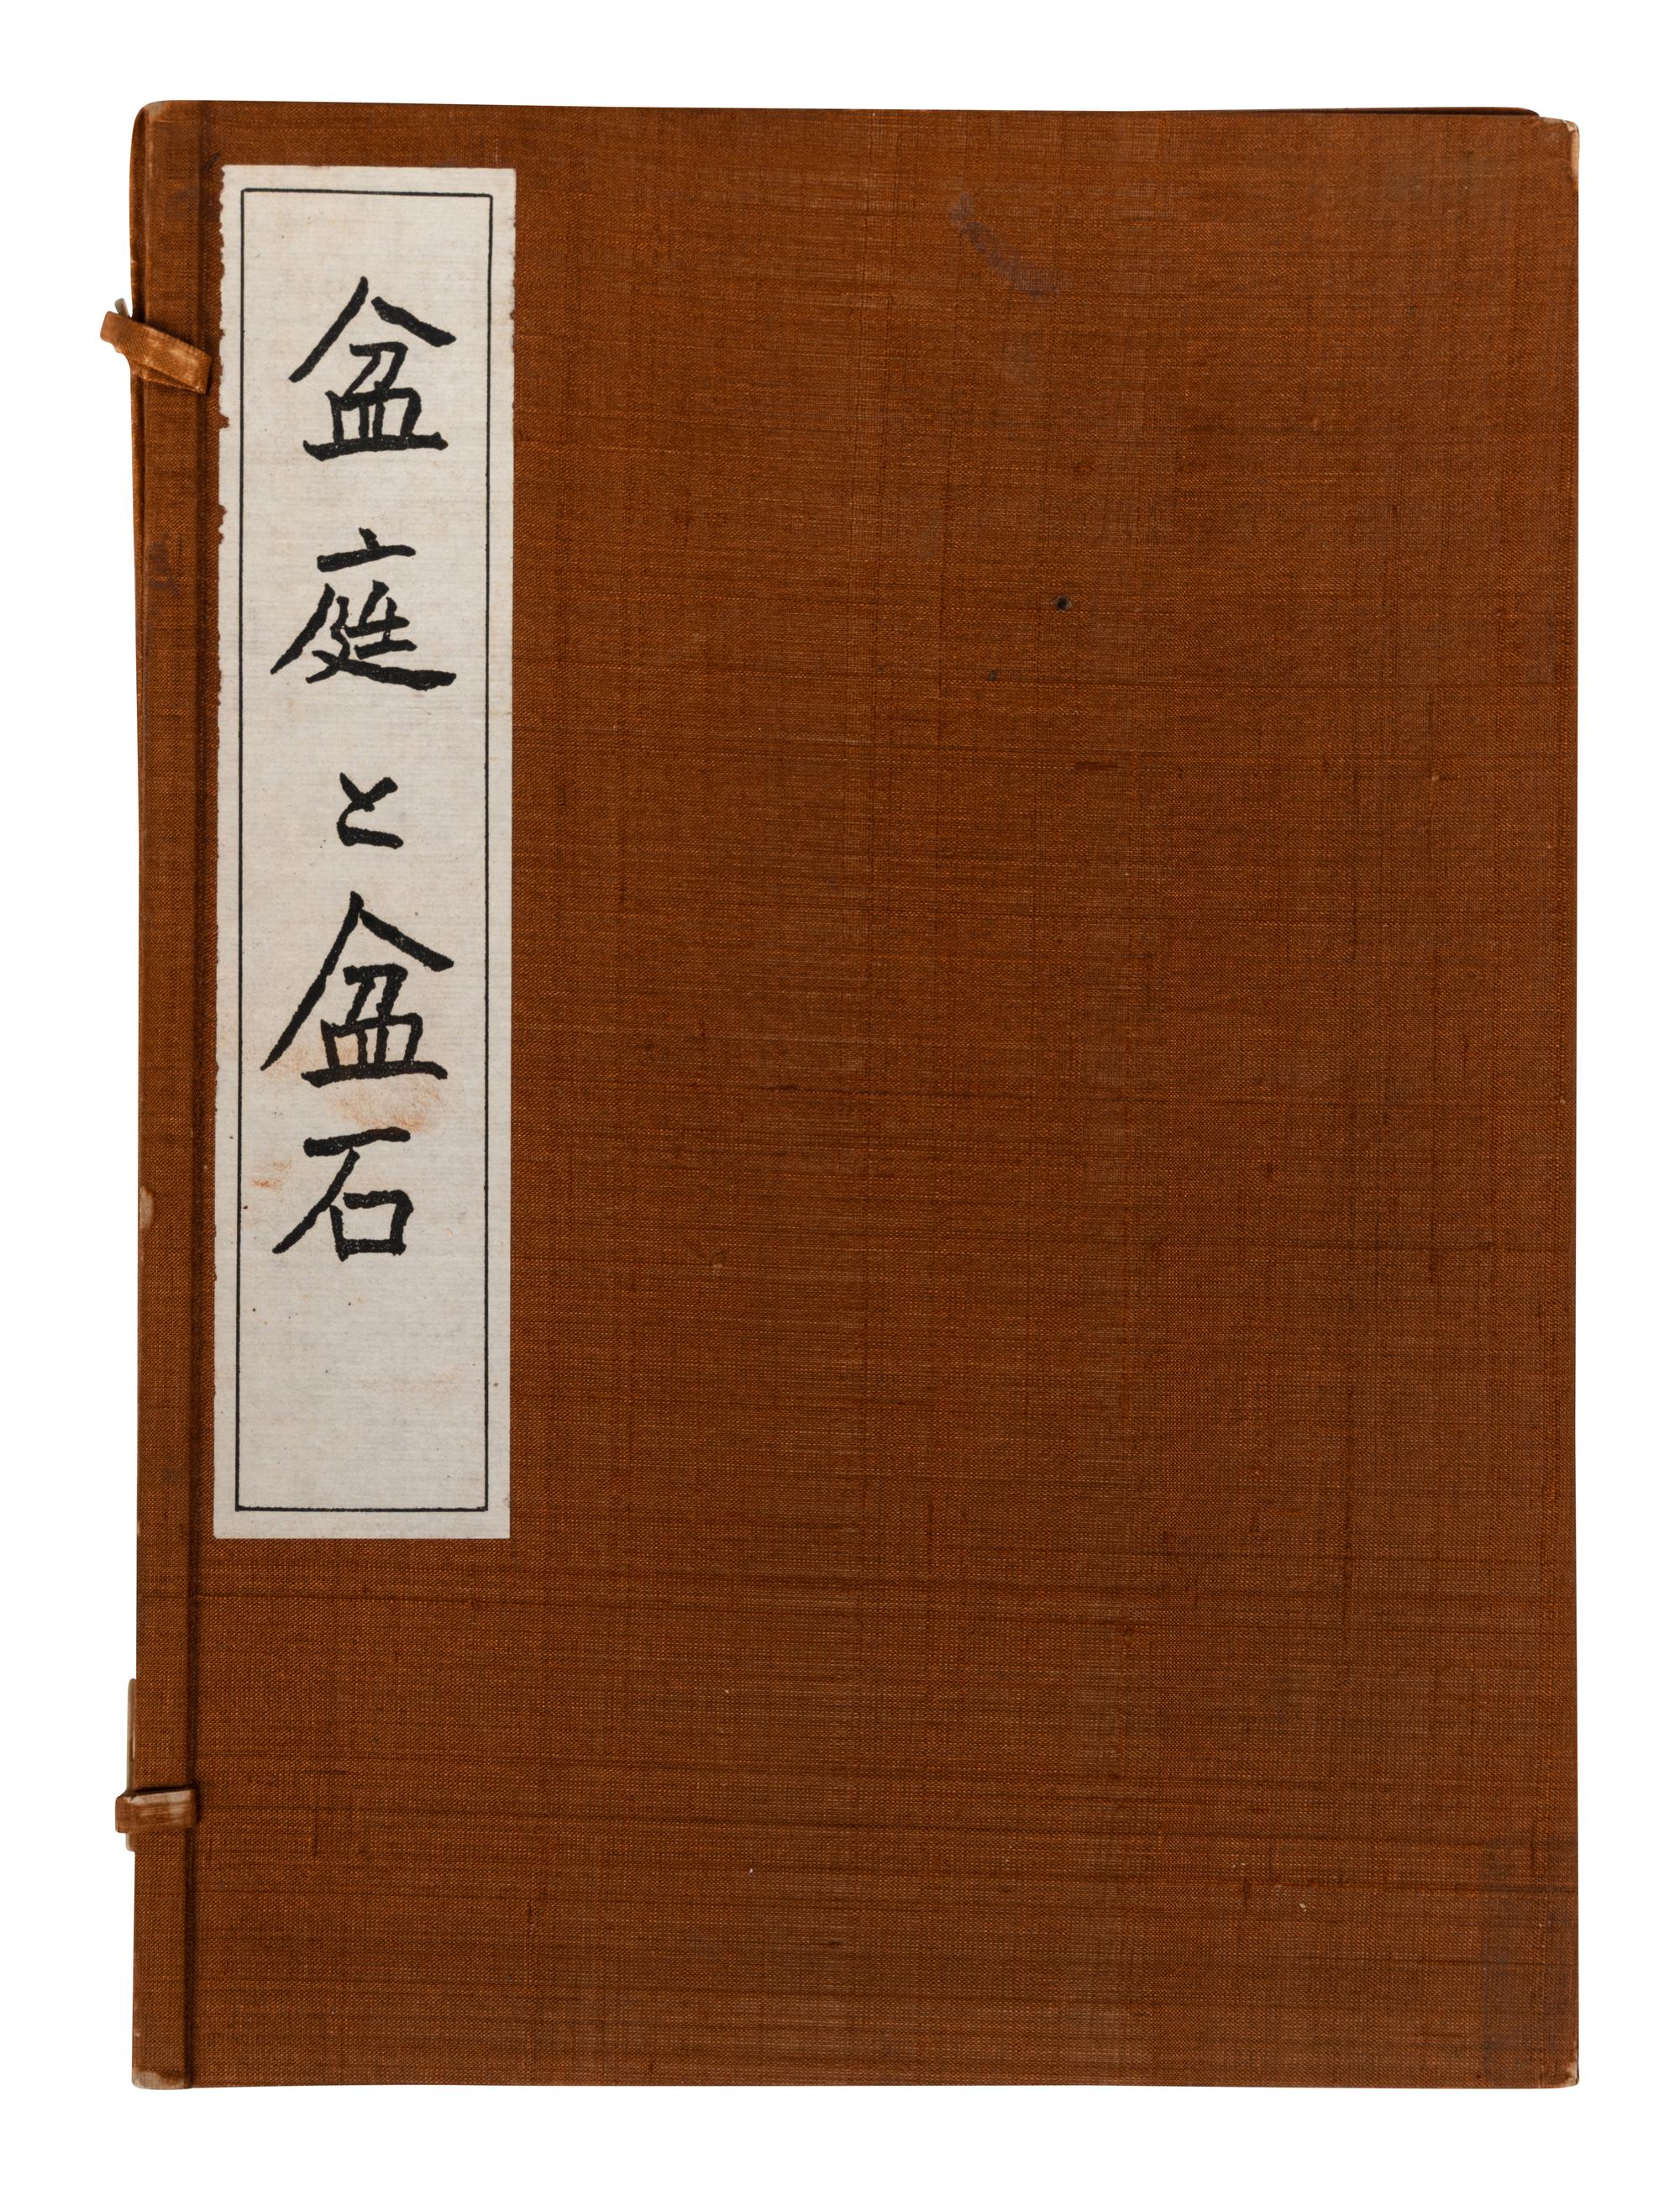 盆庭と盆石